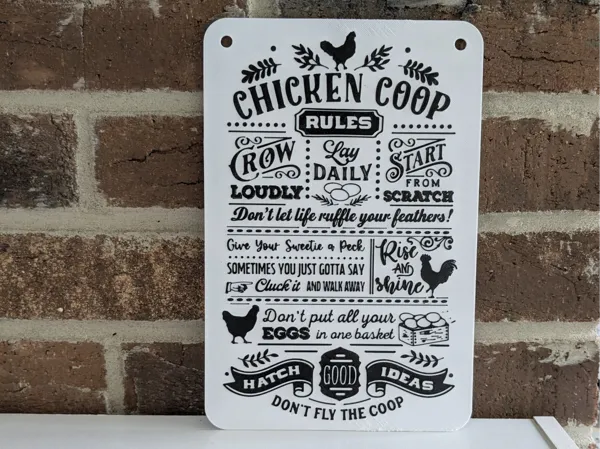 CHICKEN COOP
RULES
CROW
LOUDLY
Lay
DAILY
START
FROM
SCRATCH
Don't let life ruffle your feathers!
Give Your Sweetie a Peck
SOMETIMES YOU JUST GOTTA SAY
Cluck it AND WALK AWAY
Rise
AND
Shine
Don't put all your
EGGS in one basket
HATCH GOOD IDEAS
DON'T FLY THE COOP